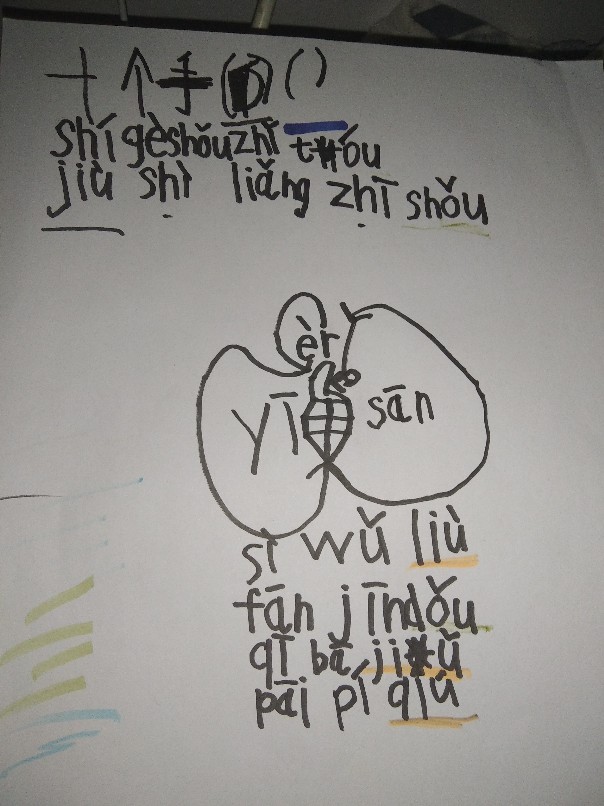 十个手()()
shí gè shǒu zhǐ tóu
jiù shì liǎng zhī shǒu
èr
yī sān
sì wǔ liù
fān jīn dǒu
qī bā jiǔ
pāi pí qiú